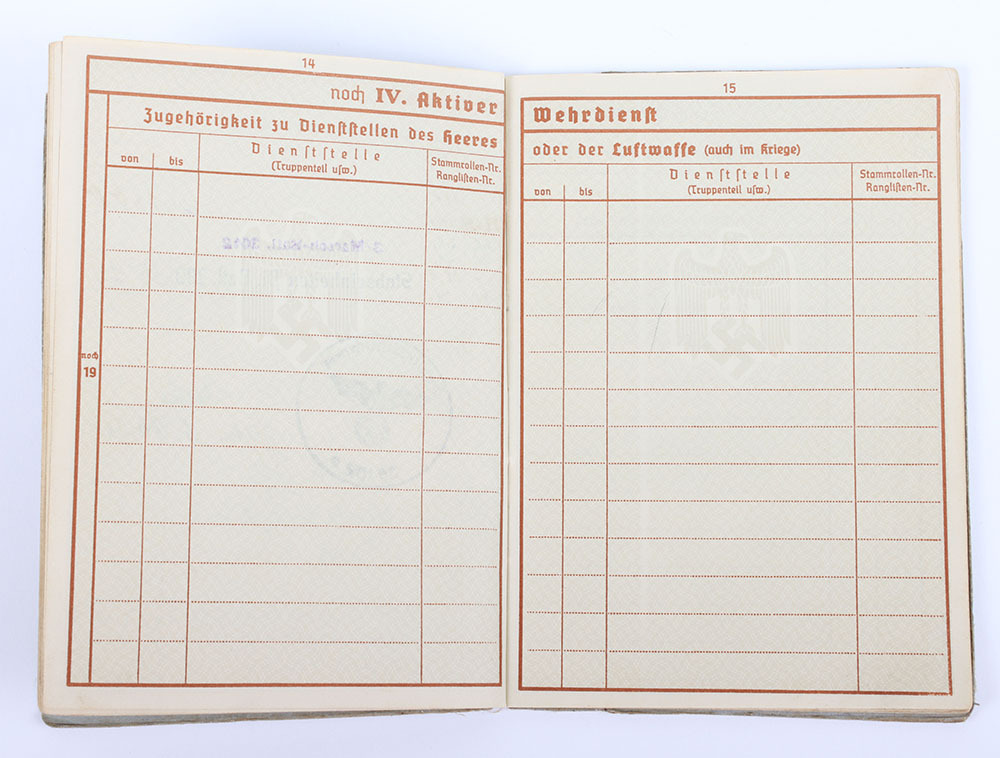 14
noch IV. Aktiver
Zugehörigkeit zu Dienststellen des Heeres
von
bis
Dienststelle
(Truppenteil usw.)
Stammrollen-Nr.
Ranglisten-Nr.
noch
19
3. Marsch-Batl. 3012
15
Wehrdienst
oder der Luftwaffe (auch im Kriege)
von
bis
Dienststelle
(Truppenteil usw.)
Stammrollen-Nr.
Ranglisten-Nr.